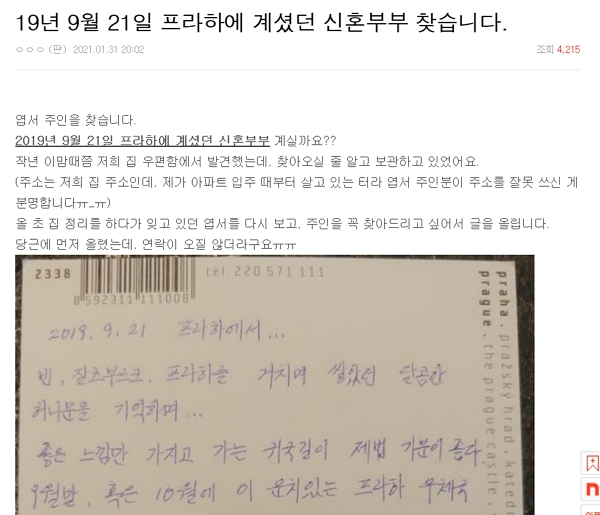 19년 9월 21일 프라하에 계셨던 신혼부부 찾습니다.
ㅇㅇㅇ (판) 2021.01.31 20:02
조회 4,215
엽서 주인을 찾습니다.
2019년 9월 21일 프라하에 계셨던 신혼부부 계실까요??
작년 이맘때쯤 저희 집 우편함에서 발견했는데, 찾아오실 줄 알고 보관하고 있었어요.
(주소는 저희 집 주소인데, 제가 아파트 입주 때부터 살고 있는 터라 엽서 주인분이 주소를 잘못 쓰신 게
분명합니다ㅠ_ㅠ)
올 초 집 정리를 하다가 잊고 있던 엽서를 다시 보고, 주인을 꼭 찾아드리고 싶어서 글을 올립니다.
당근에 먼저 올렸는데, 연락이 오질 않더라구요ㅠㅠ
2338
tel. 220 571 111
8 592311 111008
praha. pražský hrad. katedr
prague. the prague castle.
2019. 9. 21 프라하에서...
빈, 잘츠부르크, 프라하를 거치며 쌓았던 달콤한
허니문을 기억하며...
좋은 느낌만 가지고 가는 귀국길이 제법 기분이 좋다
9월말, 혹은 10월에 이 운치있는 프라하 우체국
n